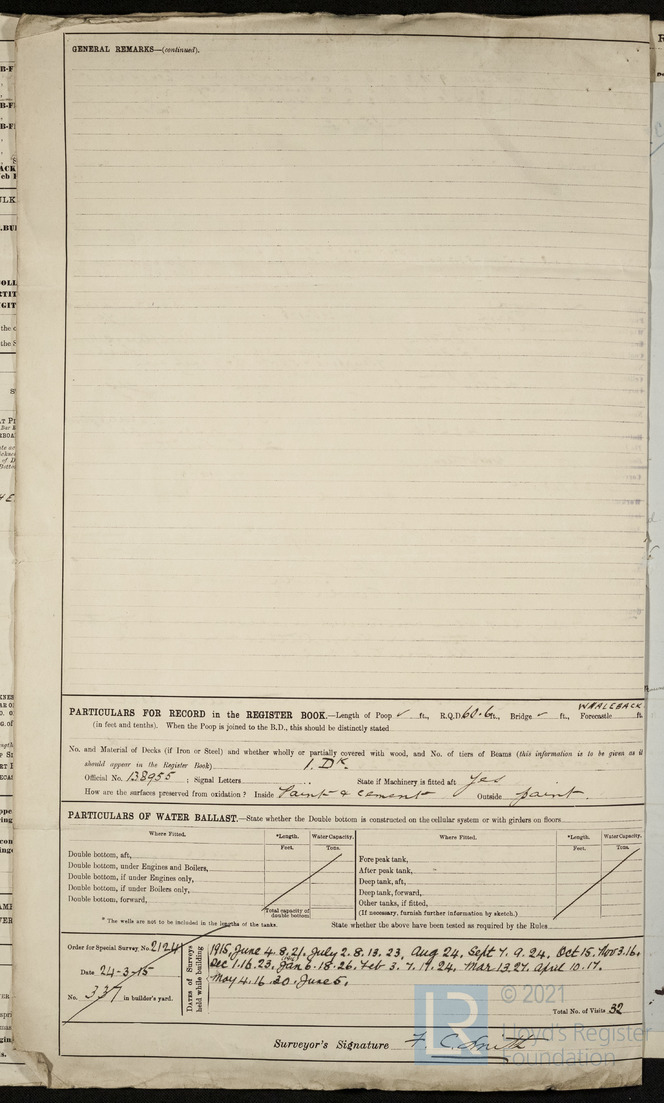 GENERAL REMARKS—(continued).
PARTICULARS FOR RECORD in the REGISTER BOOK.—Length of Poop ✓ ft., R.Q.D. 60.6 ft., Bridge ✓ ft., Forecastle WHALEBACK ft.
(in feet and tenths). When the Poop is joined to the B.D., this should be distinctly stated
No. and Material of Decks (if Iron or Steel) and whether wholly or partially covered with wood, and No. of tiers of Beams (this information is to be given as it
should appear in the Register Book) 1. Dk.
Official No. 138955 ; Signal Letters State if Machinery is fitted aft Yes
How are the surfaces preserved from oxidation? Inside Paint & cement Outside paint.
PARTICULARS OF WATER BALLAST.—State whether the Double bottom is constructed on the cellular system or with girders on floors
Where Fitted. *Length. Water Capacity. Where Fitted. *Length. Water Capacity.
Feet. Tons. Feet. Tons.
Double bottom, aft, Fore peak tank,
Double bottom, under Engines and Boilers, After peak tank,
Double bottom, if under Engines only, Deep tank, aft,
Double bottom, if under Boilers only, Deep tank, forward,
Double bottom, forward, Other tanks, if fitted,
Total capacity of double bottom (If necessary, furnish further information by sketch.)
* The wells are not to be included in the lengths of the tanks. State whether the above have been tested as required by the Rules
Order for Special Survey, No. 2124
Date 24-3-15
No. 337 in builder's yard.
DATES of Surveys held while building
1915, June 4. 8. 21. July 2. 8. 13. 23, Aug 24. Sept 7. 9. 24. Oct 15. Nov 3. 16.
Dec 1. 16. 23. Jan 6. 18. 26. Feb 3. 7. 17. 24. Mar 13. 27. April 10. 17.
May 4. 16. 30. June 5.
Total No. of Visits 32
Surveyor's Signature F. C. Smith
© 2021
Lloyd's Register
Foundation
LR